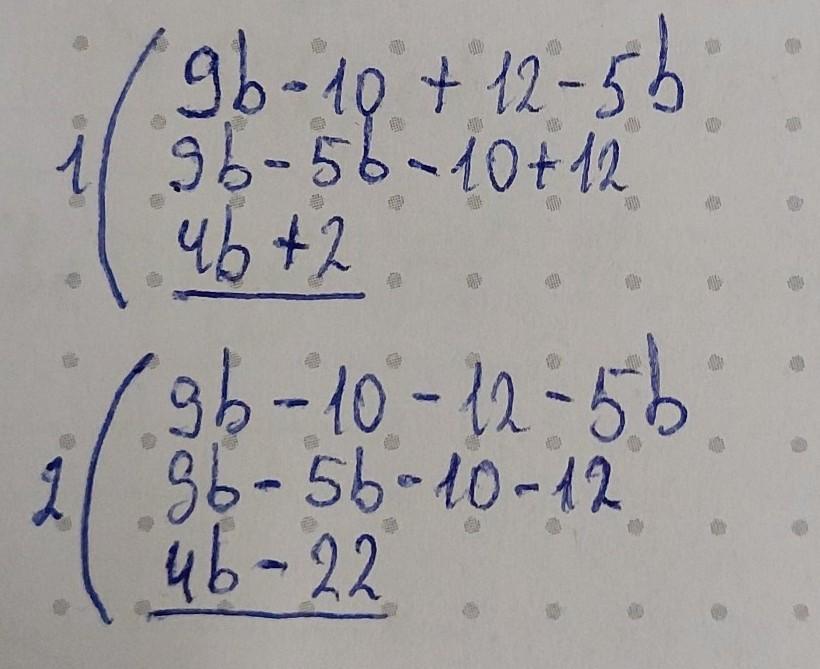 1 9b - 10 + 12 - 5b
9b - 5b - 10 + 12
4b + 2
2 9b - 10 - 12 - 5b
9b - 5b - 10 - 12
4b - 22